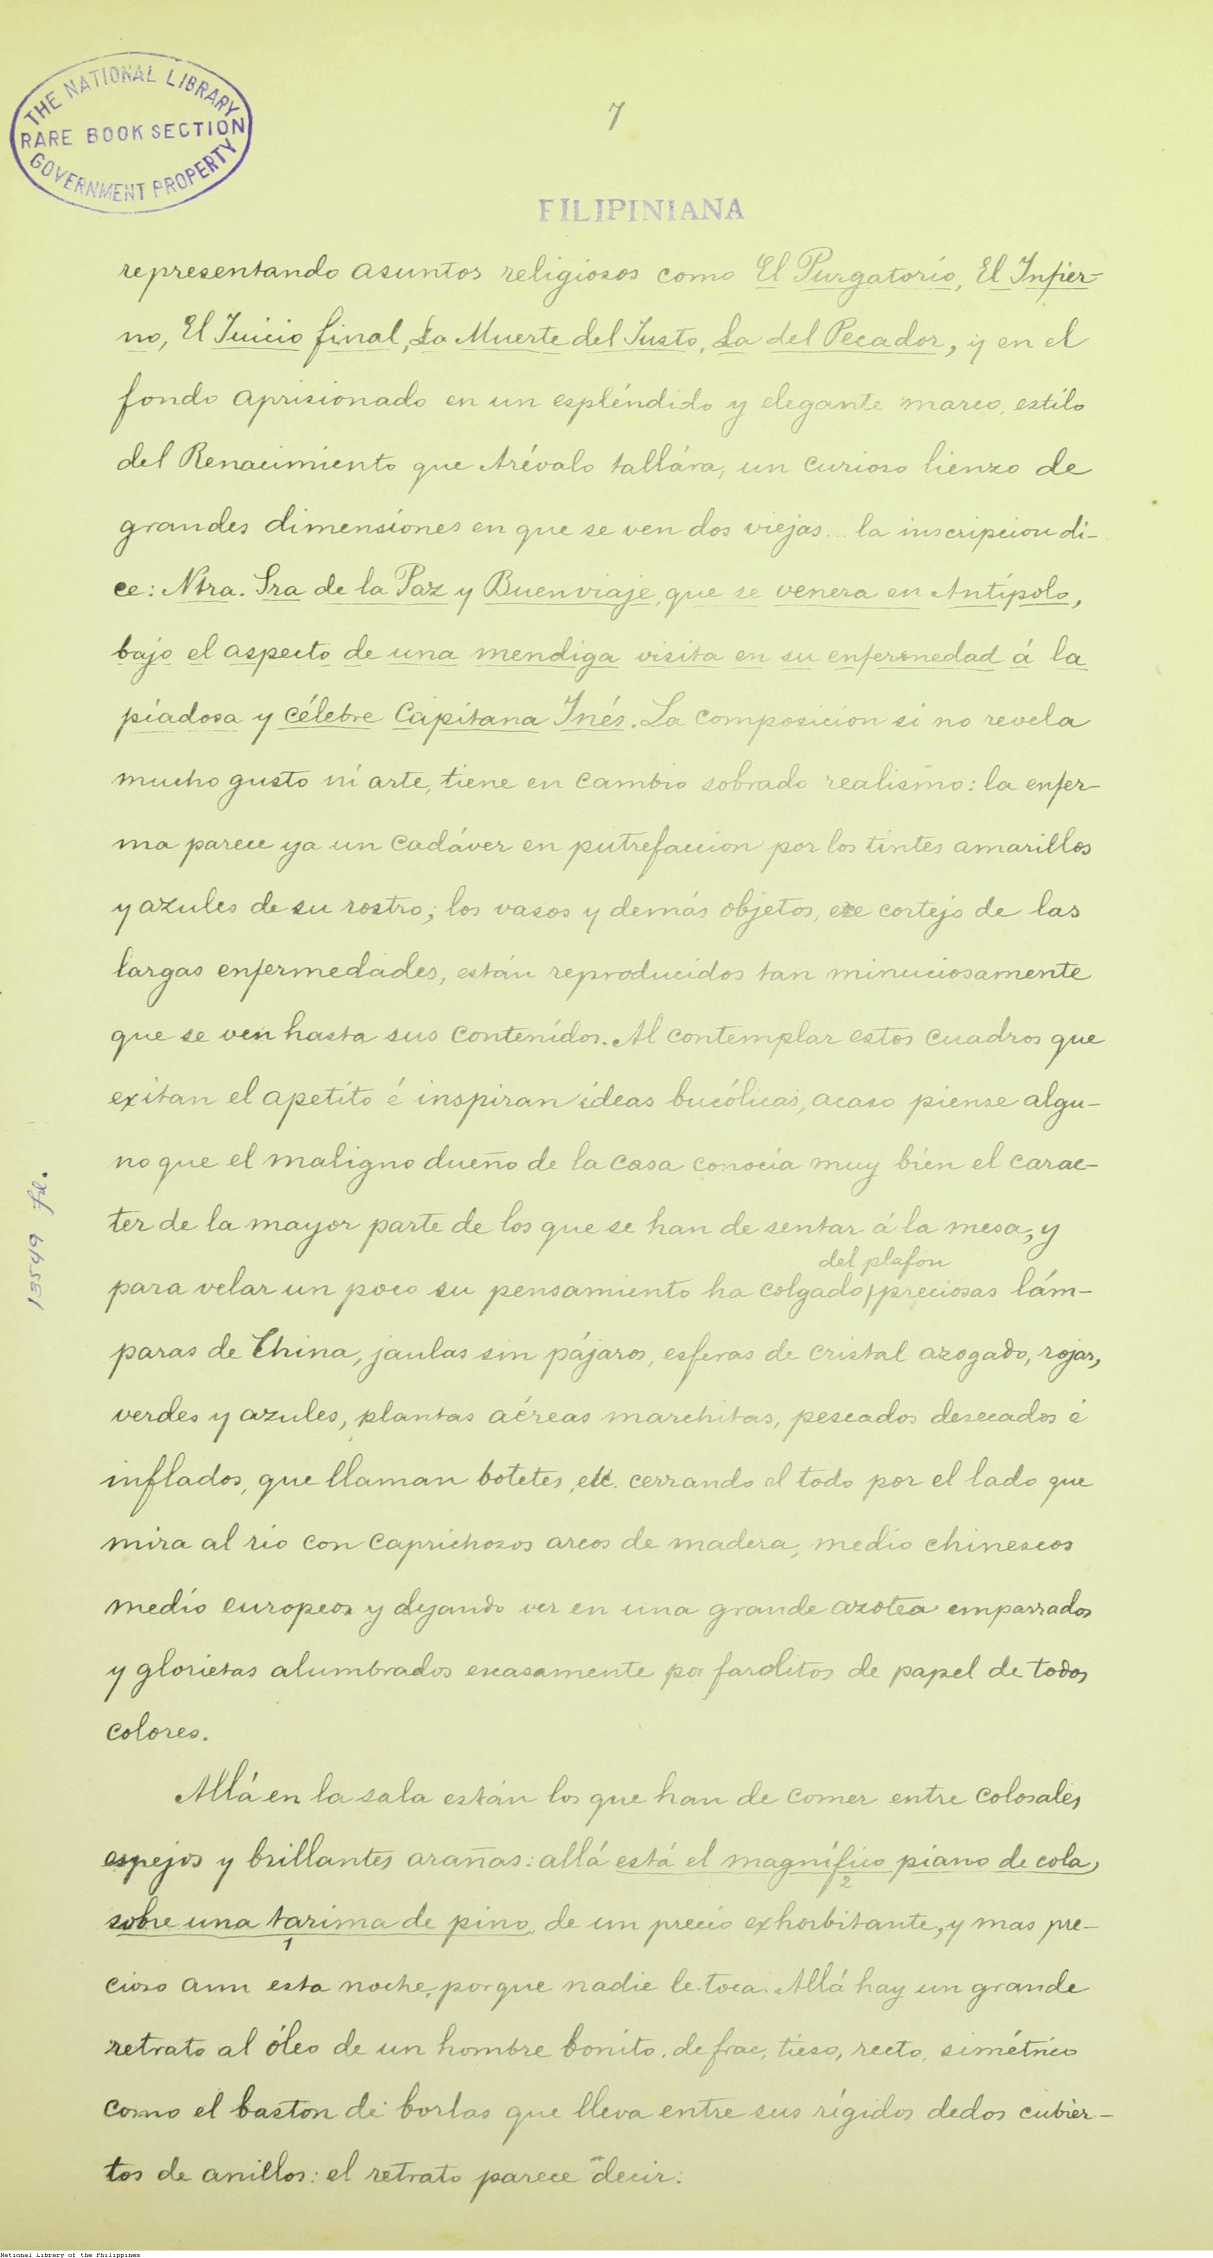 THE NATIONAL LIBRARY
RARE BOOK SECTION
GOVERNMENT PROPERTY
7
FILIPINIANA
representando asuntos religiosos como El Purgatorio, El Infier-
no, El Juicio final, La Muerte del Justo, La del Pecador, y en el
fondo aprisionado en un espléndido y elegante marco, estilo
del Renacimiento que Arévalo tallára, un curioso lienzo de
grandes dimensiones en que se ven dos viejas... la inscripcion di-
ce: Ntra. Sra de la Paz y Buenviaje, que se venera en Antípolo,
bajo el aspecto de una mendiga visita en su enfermedad á la
piadosa y célebre Capitana Inés. La composicion si no revela
mucho gusto ni arte, tiene en cambio sobrado realismo: la enfer-
ma parece ya un cadáver en putrefaccion por los tintes amarillos
y azules de su rostro; los vasos y demás objetos, ese cortejo de las
largas enfermedades, están reproducidos tan minuciosamente
que se ven hasta sus contenidos. Al contemplar estos cuadros que
exitan el apetito é inspiran ideas bucólicas, acaso piense algu-
no que el maligno dueño de la casa conocía muy bien el carac-
ter de la mayor parte de los que se han de sentar á la mesa, y
del plafon
para velar un poco su pensamiento ha colgado preciosas lám-
paras de China, jaulas sin pájaros, esferas de cristal azogado, rojas,
verdes y azules, plantas aéreas marchitas, pescados desecados é
inflados, que llaman botetes, etc. cerrando el todo por el lado que
mira al rio con caprichosos arcos de madera, medio chinescos
medio europeos y dejando ver en una grande azotea emparrados
y glorietas alumbrados escasamente por farolitos de papel de todos
colores.
Allá en la sala están los que han de comer entre colosales
espejos y brillantes arañas: allá está el magnífico piano de cola,
2
sobre una tarima de pino, de un precio exhorbitante, y mas pre-
1
cioso aun esta noche, porque nadie le toca. Allá hay un grande
retrato al óleo de un hombre bonito, de frac, tieso, recto, simétrico
como el baston de borlas que lleva entre sus rígidos dedos cubier-
tos de anillos: el retrato parece decir:
13549 fil.
National Library of the Philippines